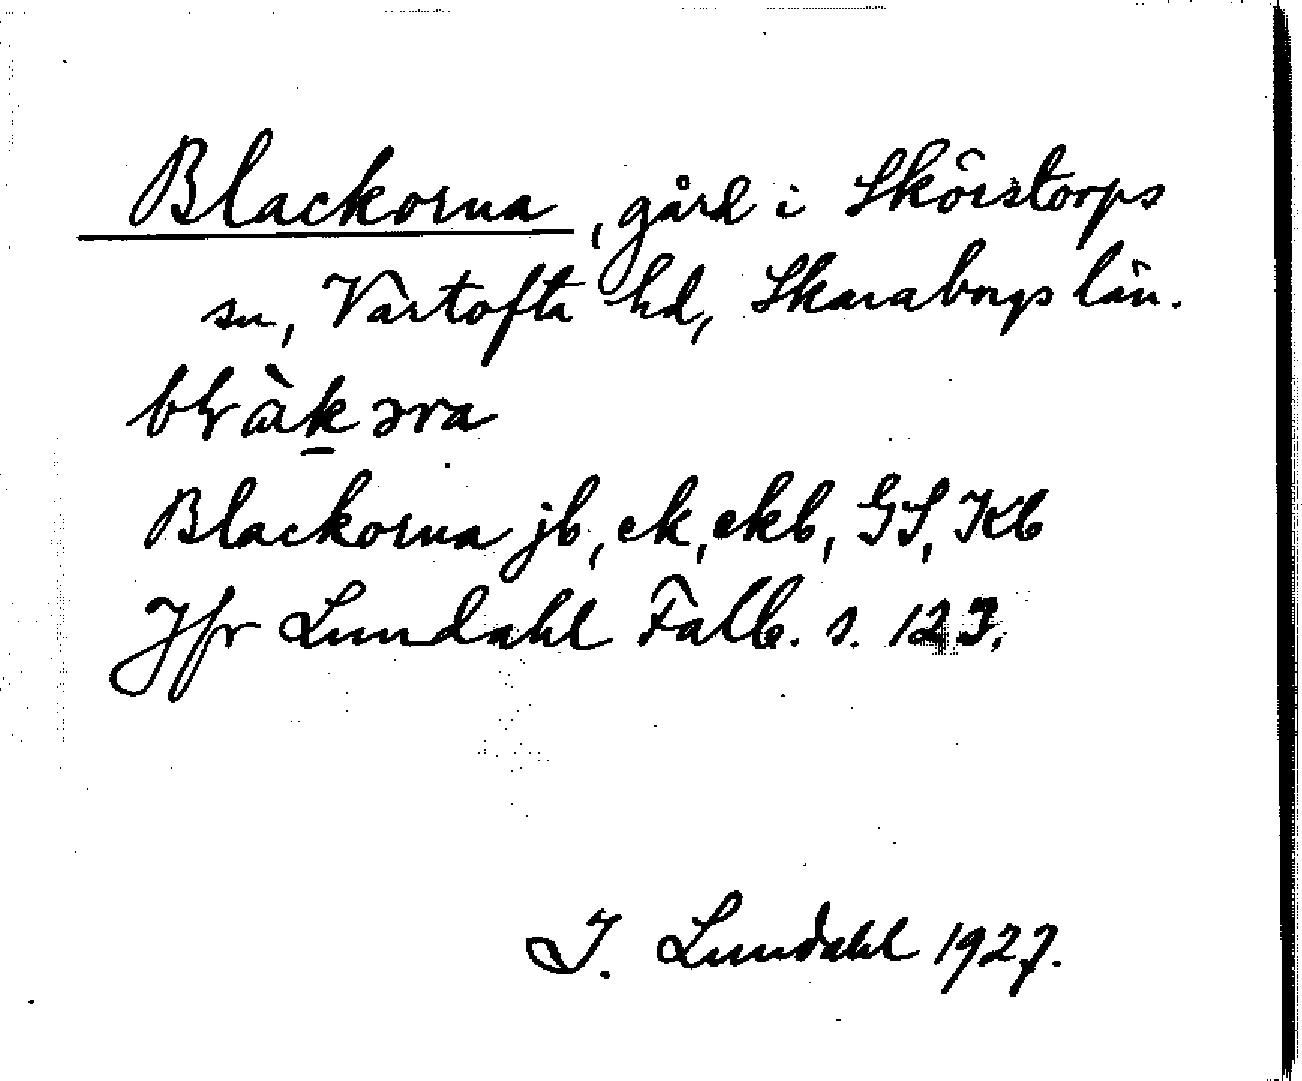 Blackorna, gård i Skörstorps
sn, Vartofta hd, Skaraborgs län.
Blackorna jb, ek, ekb, GS, Kb
Jfr Lundahl Falb. s. 123.
I. Lundahl 1927.